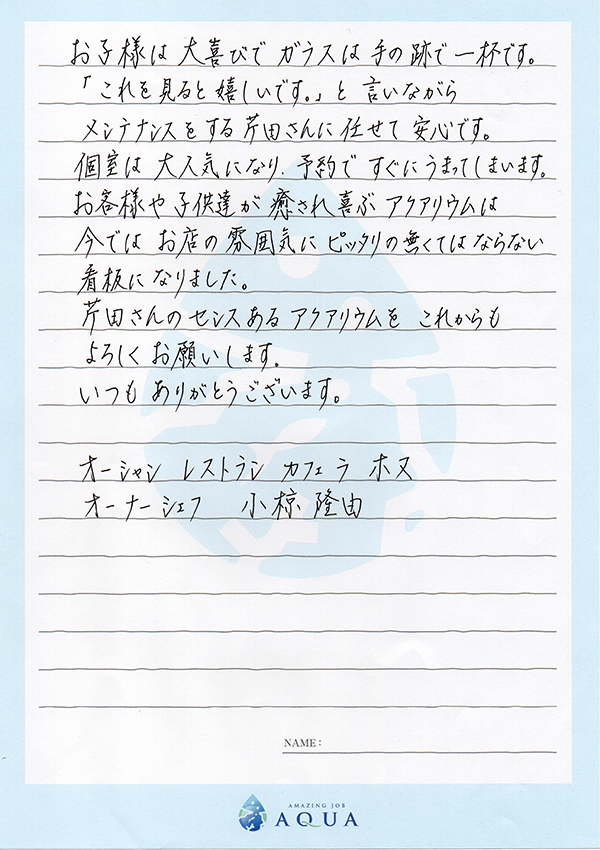 お子様は 大喜びで ガラスは 手の 跡で 一杯です。
「これを見ると 嬉しいです。」と 言いながら
メンテナンスをする 芹田さんに 任せて 安心です。
個室は 大人気になり、予約で すぐにうまってしまいます。
お客様や 子供達が 癒され喜ぶ アクアリウムは
今では お店の 雰囲気に ピッタリの無くてはならない
看板になりました。
芹田さんのセンスある アクアリウムを これからも
よろしく お願いします。
いつも ありがとうございます。
オーシャン レストラン カフェ ラ ホヌ
オーナーシェフ 小椋 隆由
NAME:
AMAZING JOB
AQUA